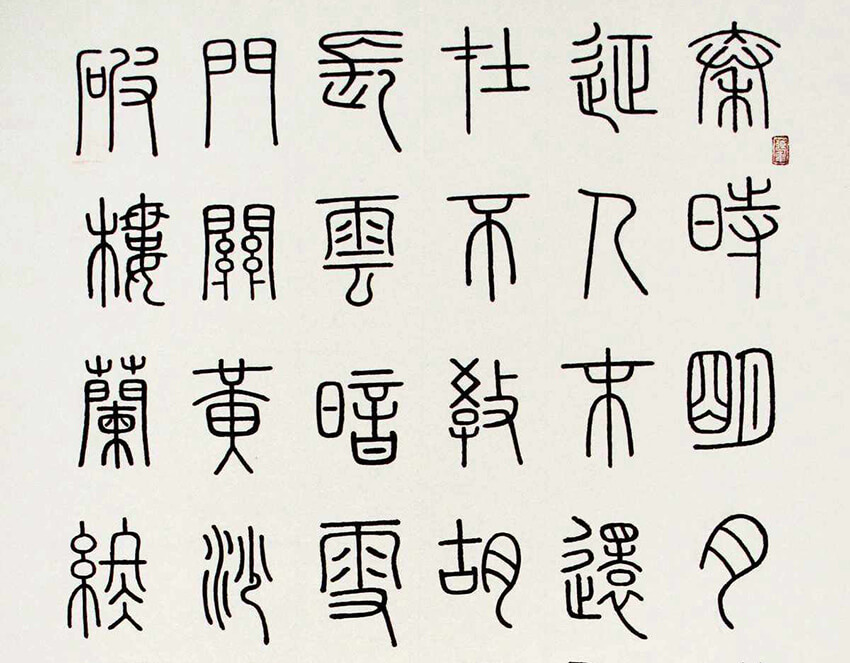 秦時明月
征人未還
在不教胡
長雲暗雪
門關黃沙
破樓蘭終